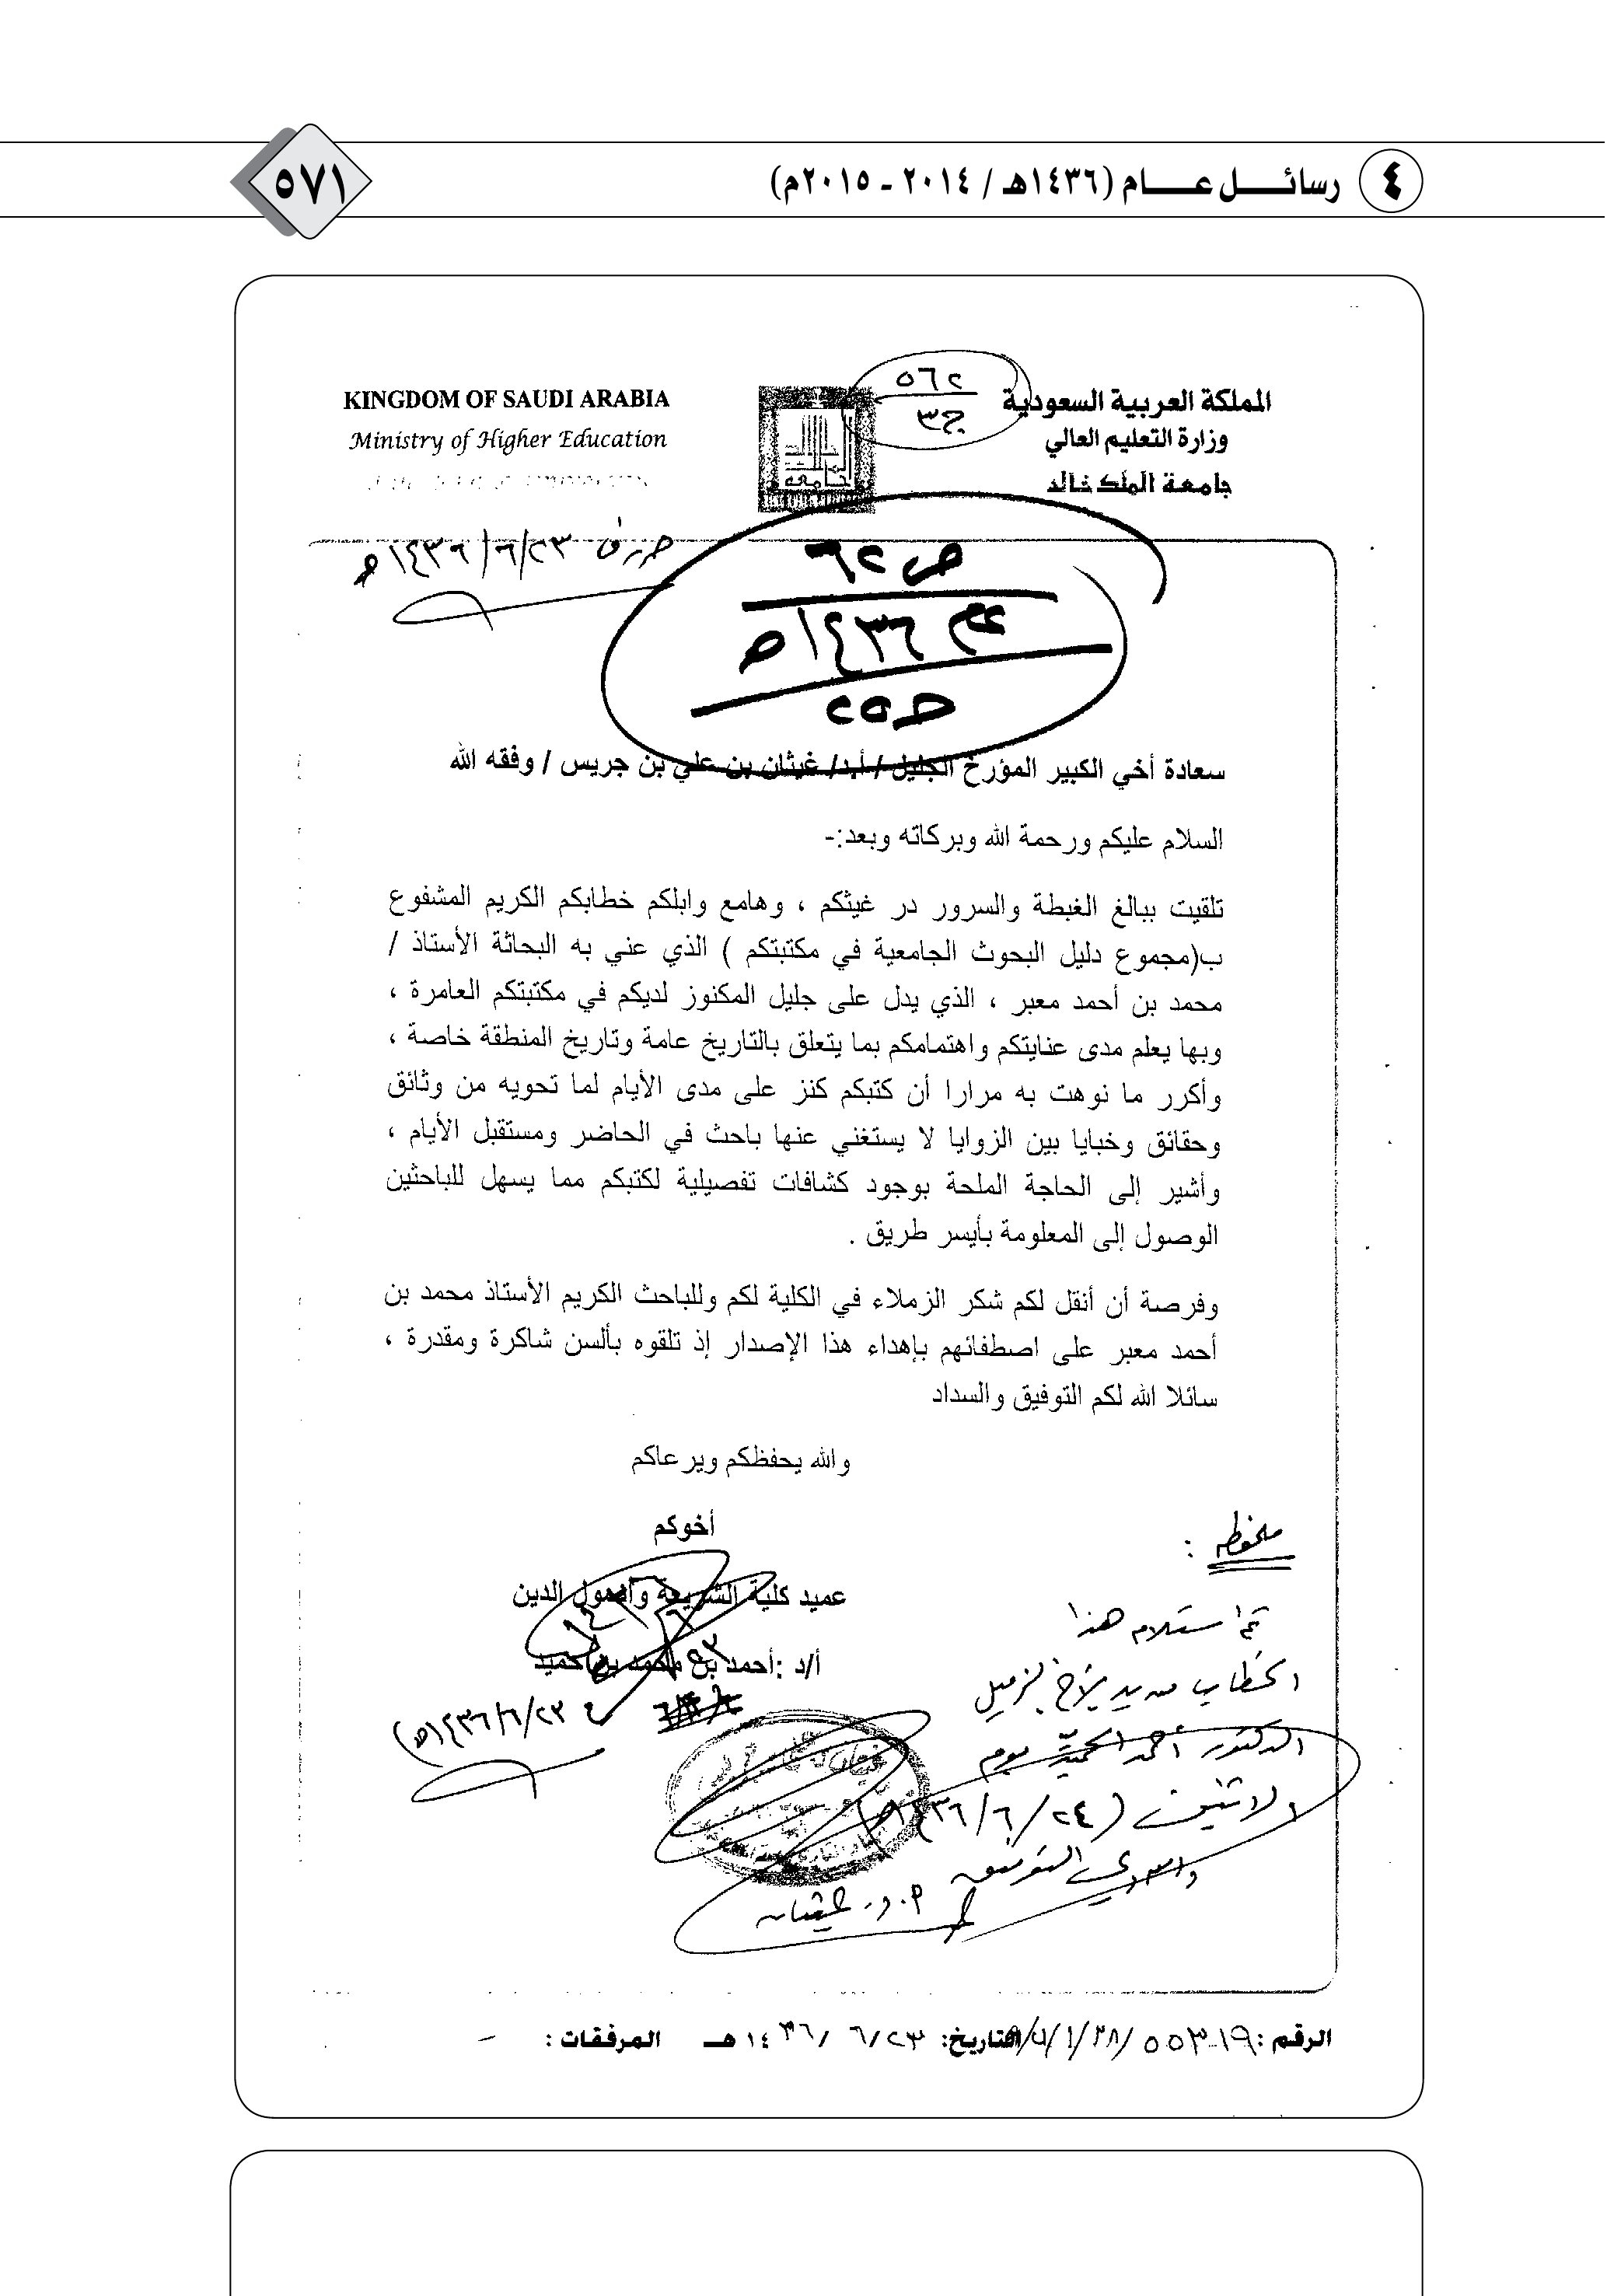 ٤ رسائل عام (١٤٣٦هـ / ٢٠١٤ - ٢٠١٥م)
٥٧١
المملكة العربية السعودية
وزارة التعليم العالي
جامعة الملك خالد
KINGDOM OF SAUDI ARABIA
Ministry of Higher Education
٥٦٢
ج٣
١٤٣٦/٦/٢٣هـ
ص ٦٢
١٤٣٦هـ
سعادة أخي الكبير المؤرخ الجليل / أ.د/ غيثان بن علي بن جريس / وفقه الله
السلام عليكم ورحمة الله وبركاته وبعد:-
تلقيت ببالغ الغبطة والسرور در غيثكم ، وهامع وابلكم خطابكم الكريم المشفوع
ب(مجموع دليل البحوث الجامعية في مكتبتكم ) الذي عني به البحاثة الأستاذ /
محمد بن أحمد معبر ، الذي يدل على جليل المكنوز لديكم في مكتبتكم العامرة ،
وبها يعلم مدى عنايتكم واهتمامكم بما يتعلق بالتاريخ عامة وتاريخ المنطقة خاصة ،
وأكرر ما نوهت به مرارا أن كتبكم كنز على مدى الأيام لما تحويه من وثائق
وحقائق وخبايا بين الزوايا لا يستغني عنها باحث في الحاضر ومستقبل الأيام ،
وأشير إلى الحاجة الملحة بوجود كشافات تفصيلية لكتبكم مما يسهل للباحثين
الوصول إلى المعلومة بأيسر طريق .
وفرصة أن أنقل لكم شكر الزملاء في الكلية لكم وللباحث الكريم الأستاذ محمد بن
أحمد معبر على اصطفائهم بإهداء هذا الإصدار إذ تلقوه بألسن شاكرة ومقدرة ،
سائلا الله لكم التوفيق والسداد
والله يحفظكم ويرعاكم
أخوكم
عميد كلية الشريعة وأصول الدين
أ/د :أحمد بن محمد بن حميد
١٤٣٦/٦/٢٣هـ)
ملحوظة :
تم استلام هذا
الخطاب من يد الأخ الزميل
الدكتور أحمد الحميد يوم
الاثنين (١٤٣٦/٦/٢٤هـ)
والله ولي التوفيق
أ.د. غيثان
الرقم : التاريخ: ٦/٢٣ /١٤٣٦هـ المرفقات : -